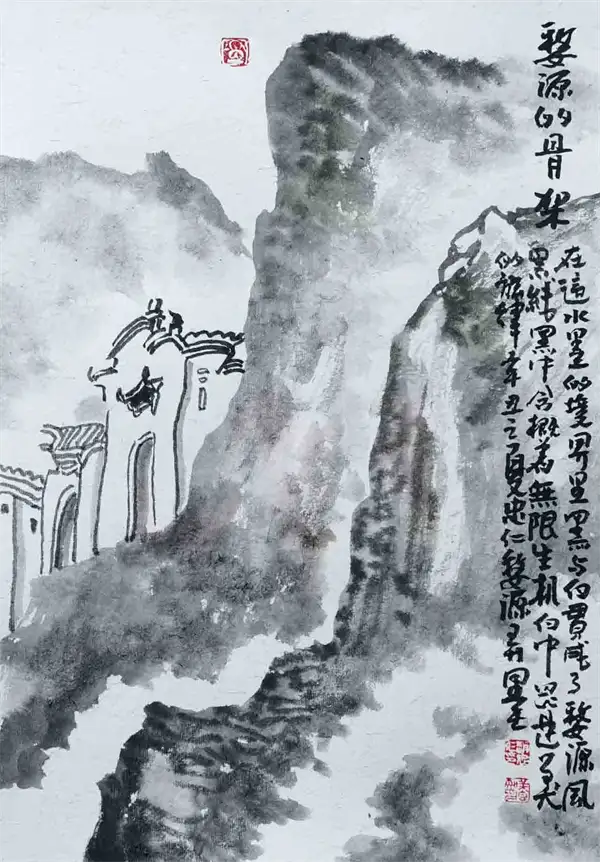 婺源的骨架
在這水墨的境界里黑与白貫成了婺源風
黑中含概着無限生机白中
的旋律辛丑之夏忠仁婺源